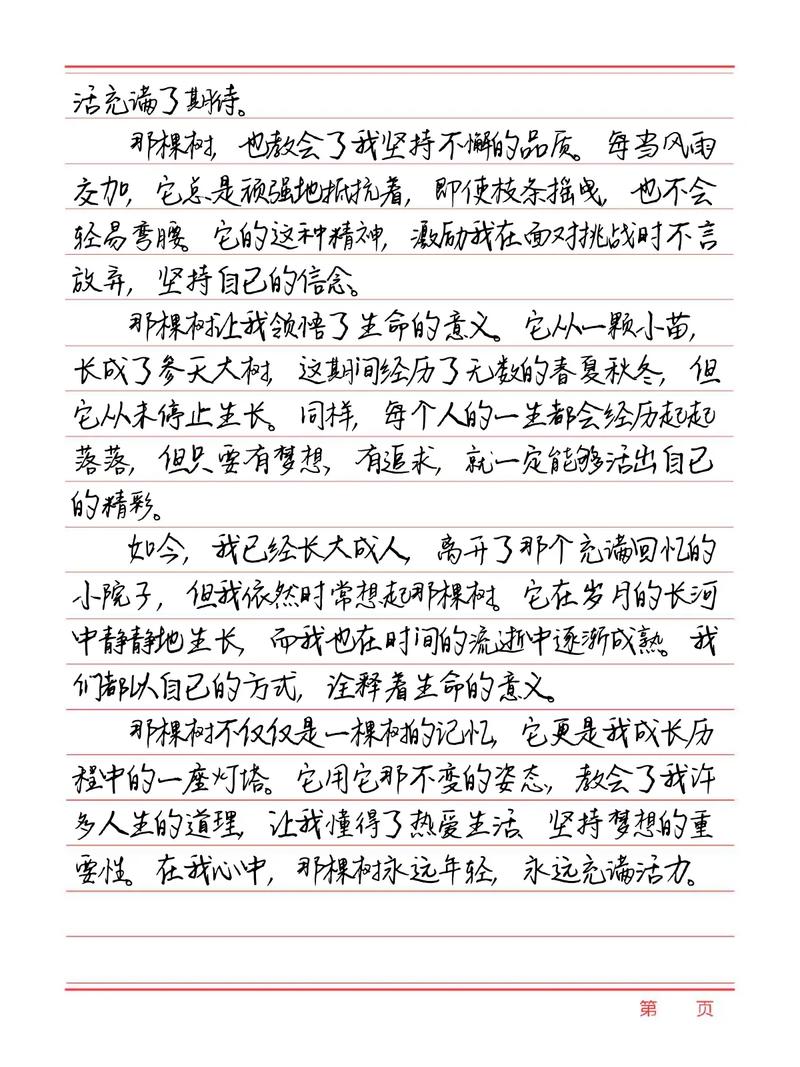 活充满了期待。
那棵树，也教会了我坚持不懈的品质。每当风雨
交加，它总是顽强地抵抗着，即使枝条摇曳，也不会
轻易弯腰。它的这种精神，激励我在面对挑战时不言
放弃，坚持自己的信念。
那棵树让我领悟了生命的意义。它从一颗小苗，
长成了参天大树，这期间经历了无数的春夏秋冬，但
它从未停止生长。同样，每个人的一生都会经历起起
落落，但只要有梦想，有追求，就一定能够活出自己
的精彩。
如今，我已经长大成人，离开了那个充满回忆的
小院子，但我依然时常想起那棵树。它在岁月的长河
中静静地生长，而我也在时间的流逝中逐渐成熟。我
们都以自己的方式，诠释着生命的意义。
那棵树不仅仅是一棵树的记忆，它更是我成长历
程中的一座灯塔。它用它那不变的姿态，教会了我许
多人生的道理，让我懂得了热爱生活、坚持梦想的重
要性。在我心中，那棵树永远年轻，永远充满活力。
第 页